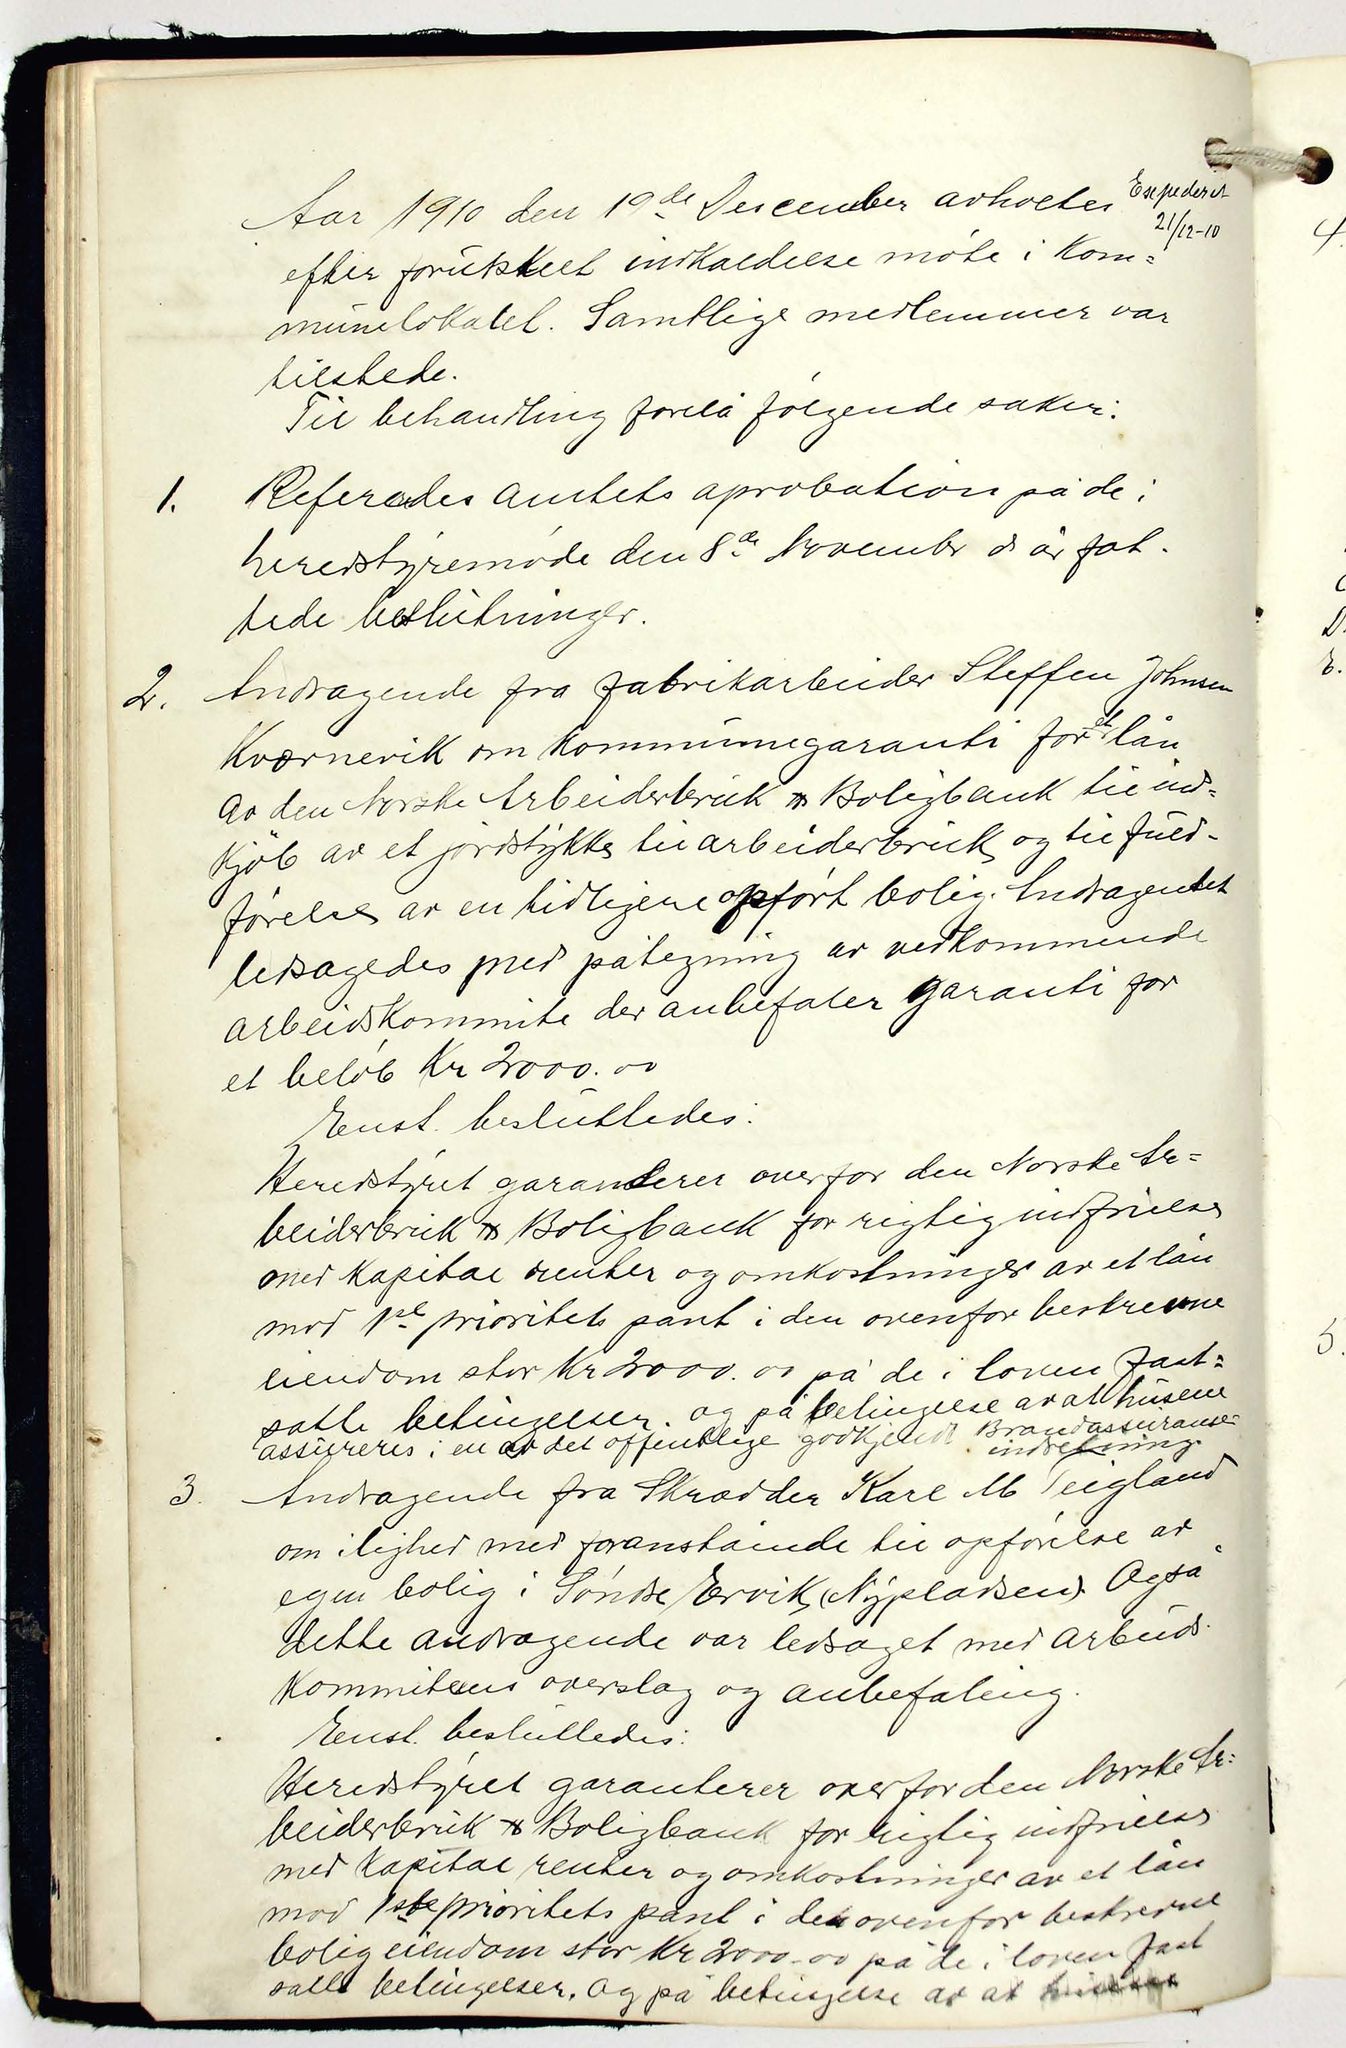 Expederet
21/12-10
Aar 1910 den 19de Descember avholtes
efter forutskeet indkaldelse møte i Kom=
munelokalet. Samtlige medlemmer var
tilstede.
Til behandling forelå følgende saker:
1. Referedes amtets aprobation på de i
heredstyremøde den 8de November d. år fat-
tede beslutninger.
2. Andragende fra fabrikarbeider Steffen Johnsen
Kværnevik om kommunegaranti for et lån
av den Norske Arbeiderbruk & Boligbank til ind=
kjøb av et jordstykke til arbeiderbruk og til fuld-
førelse av en tidligere opført bolig. Andragendet
ledsagedes med påtegning av vedkommende
arbeidskommite der anbefaler garanti for
et beløb Kr 2000.00
Enst. besluttedes:
Heredstyret garanterer overfor den Norske Ar=
beiderbruk & Boligbank for rigtig indfrielse
med kapital renter og omkostninger av et lån
mod 1ste prioritets pant i den ovenfor beskrevne
eiendom stor Kr 2000.00 på de i loven fast=
satte betingelser. og på betingelse av at husene
assureres i en av det offentlige godkjendt Brandassuranse
indretning
3. Andragende fra Skrædder Karl M Teigland
om i lighed med foranstående til opførelse av
egen bolig i Søndre Ervik (Nypladsen). Også
dette andragende var ledsaget med arbeids-
kommiteens overslag og anbefaling.
Enst. besluttedes:
Heredstyret garanterer overfor den Norske Ar=
beiderbruk & Boligbank for rigtig indfrielse
med kapital renter og omkostninger av et lån
mod 1ste prioritets pant i den ovenfor beskrevne
bolig eiendom stor Kr 2000.00 på de i loven fast
satte betingelser. og på betingelse av at
4.
D.
E.
5.